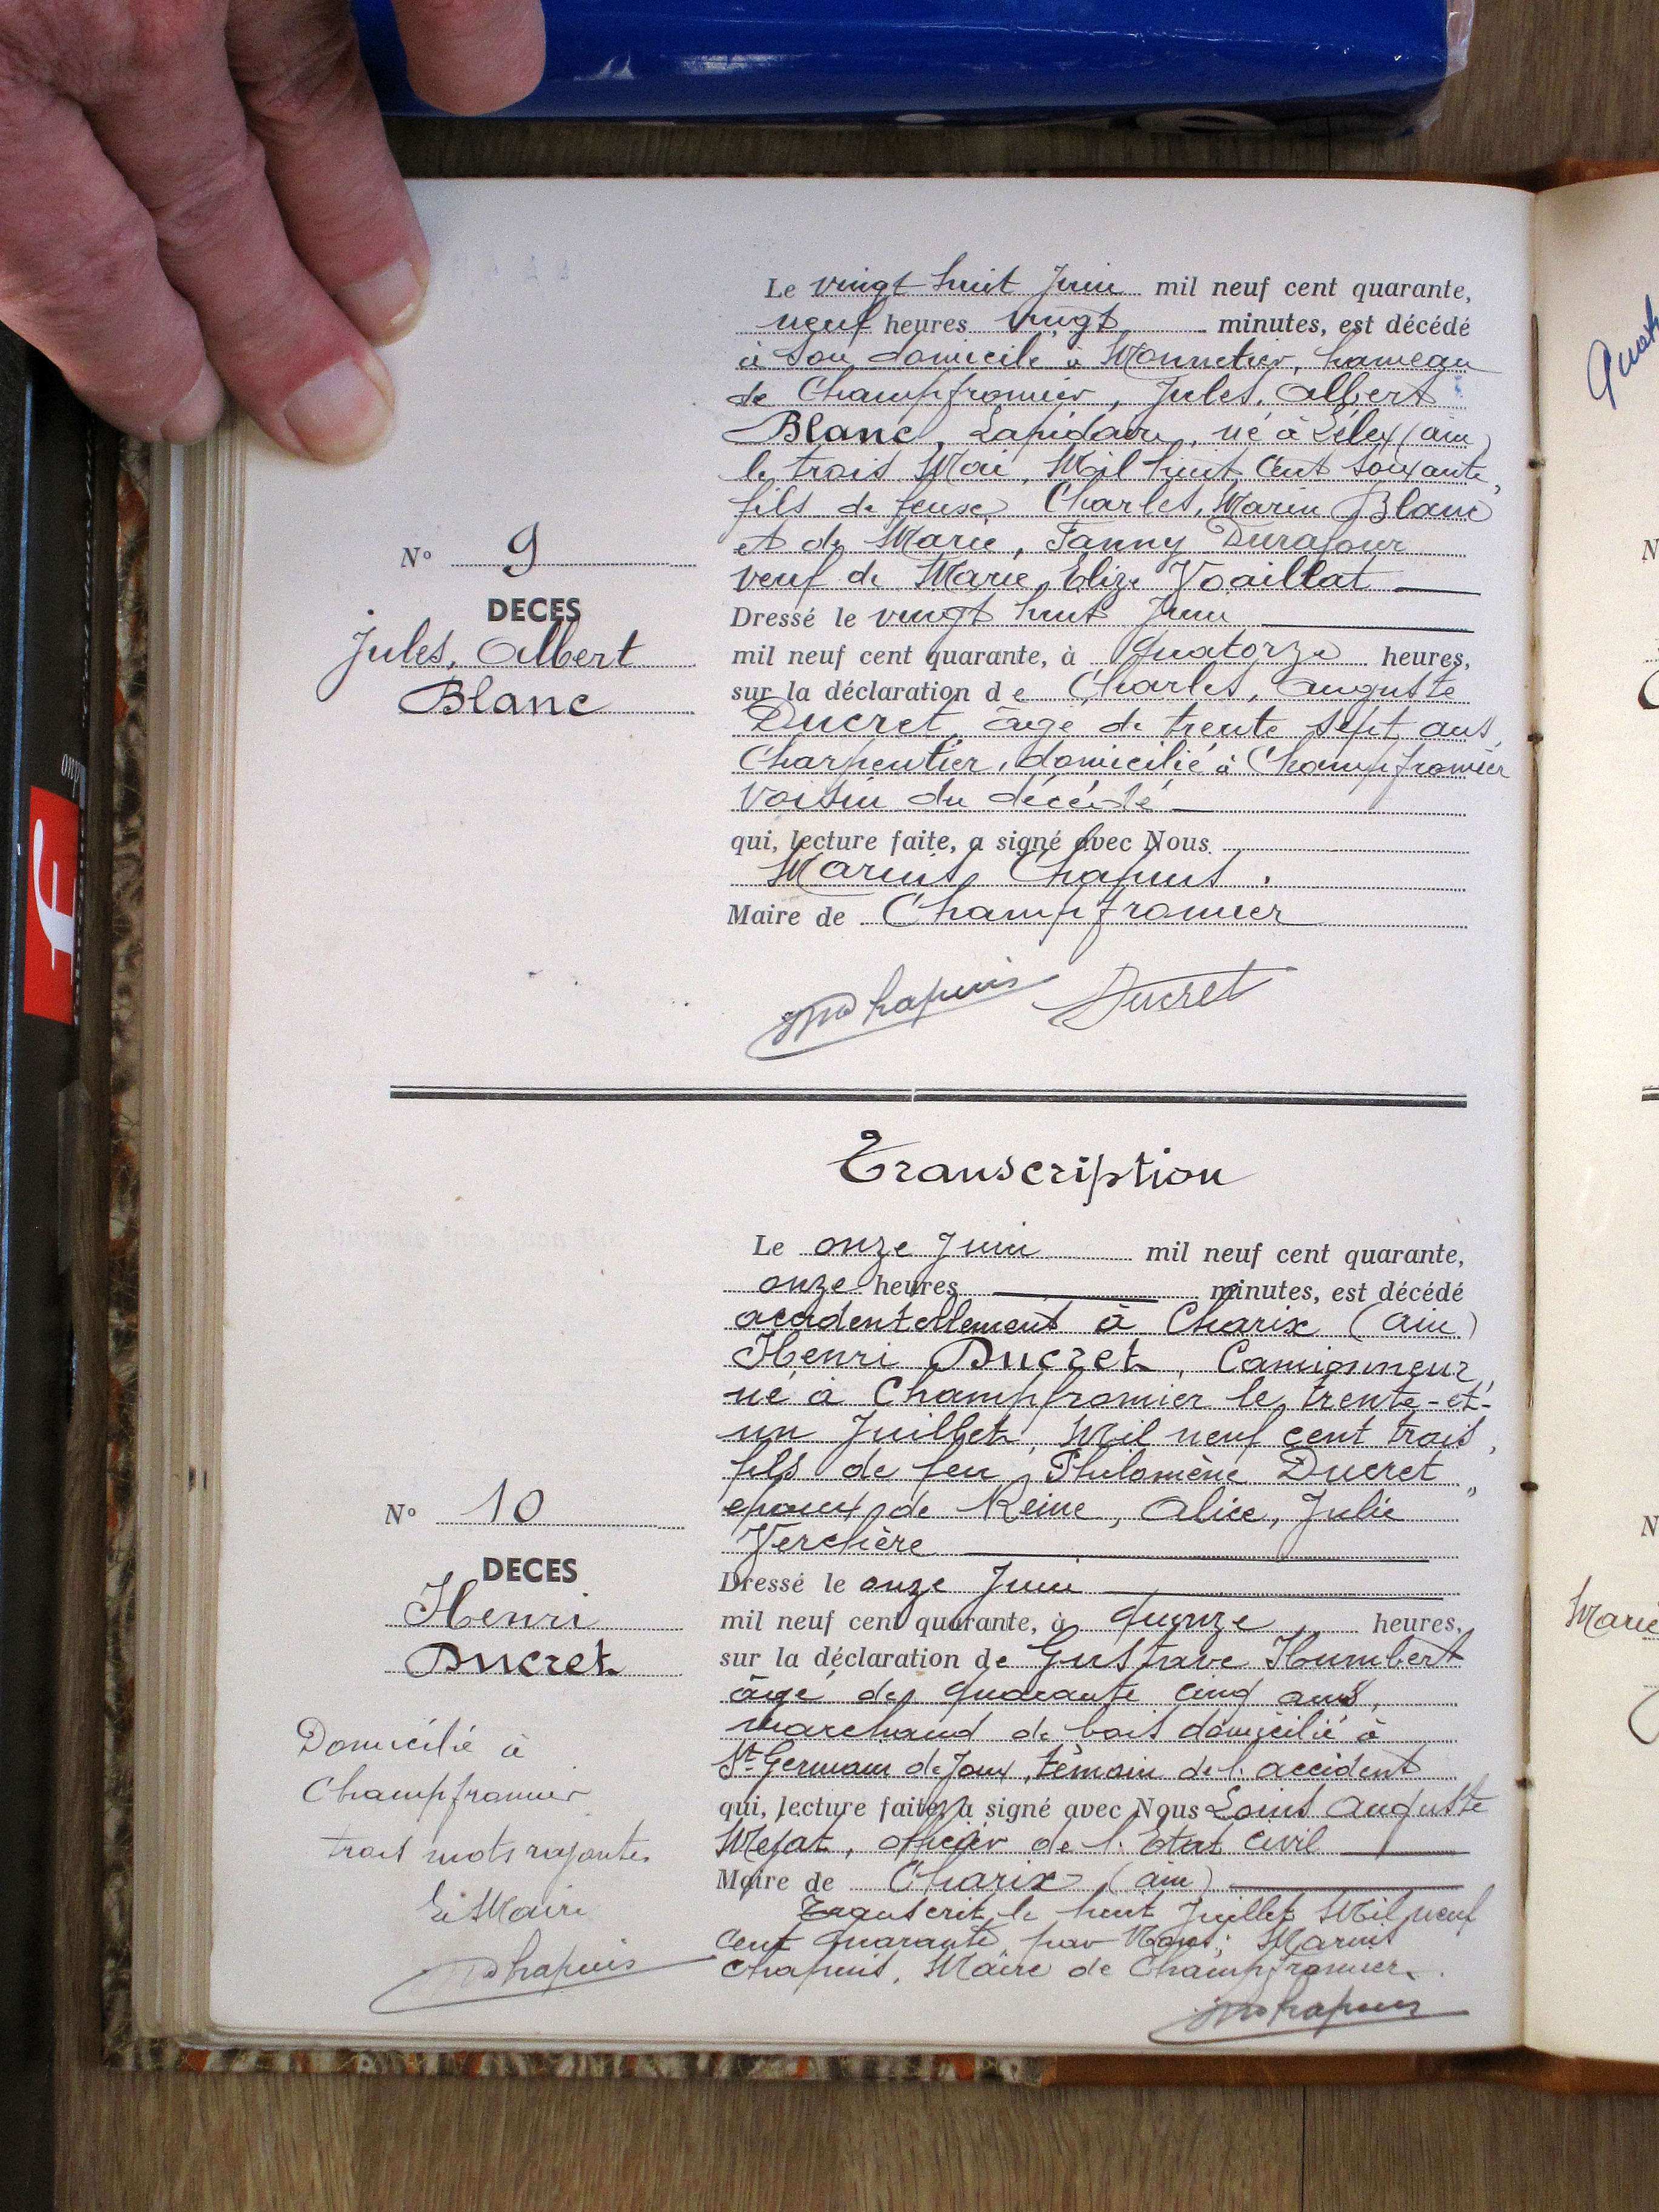 Le vingt huit Juin mil neuf cent quarante,
neuf heures vingt minutes, est décédé
à son domicile à Monnetier, hameau
de Champfromier, Jules, Albert
Blanc, Lapidaire, né à Lélex (ain)
le trois Mai, Mil huit Cent soixante,
fils de feux Charles, Marin Blanc
et de Marie, Fanny Durafour
veuf de Marie, Elize Voaillat
N° 9
DECES
Jules, Albert
Blanc
Dressé le vingt huit Juin
mil neuf cent quarante, à quatorze heures,
sur la déclaration de Charles, auguste
Ducret, âgé de trente sept ans,
Charpentier, domicilié à Champfromier
voisin du décédé
qui, lecture faite, a signé avec Nous
Marius Chapuis.
Maire de Champfromier
Chapuis Ducret
Transcription
Le onze Juin mil neuf cent quarante,
onze heures minutes, est décédé
accidentellement à Charix (ain)
Henri Ducret, Camionneur,
né à Champfromier le trente-et-
un Juillet, Mil neuf cent trois,
fils de feu, Philomène Ducret
epoux de Reine, Alice, Julie
Verchère
N° 10
DECES
Henri
Ducret
Domicilié à
Champfromier
trois mots rajoutés
Le Maire
Chapuis
Dressé le onze Juin
mil neuf cent quarante, à quinze heures,
sur la déclaration de Gustave Humbert
âgé de quarante cinq ans,
marchand de bois domicilié à
St Germain de Joux, témoin de l'accident
qui, lecture faite, a signé avec Nous Louis Auguste
Mejat, officier de l'Etat civil
Maire de Charix (ain)
Transcrit le huit Juillet Mil neuf
Cent quarante, par Nous; Marius
Chapuis, Maire de Champfromier.
Chapuis
Marie